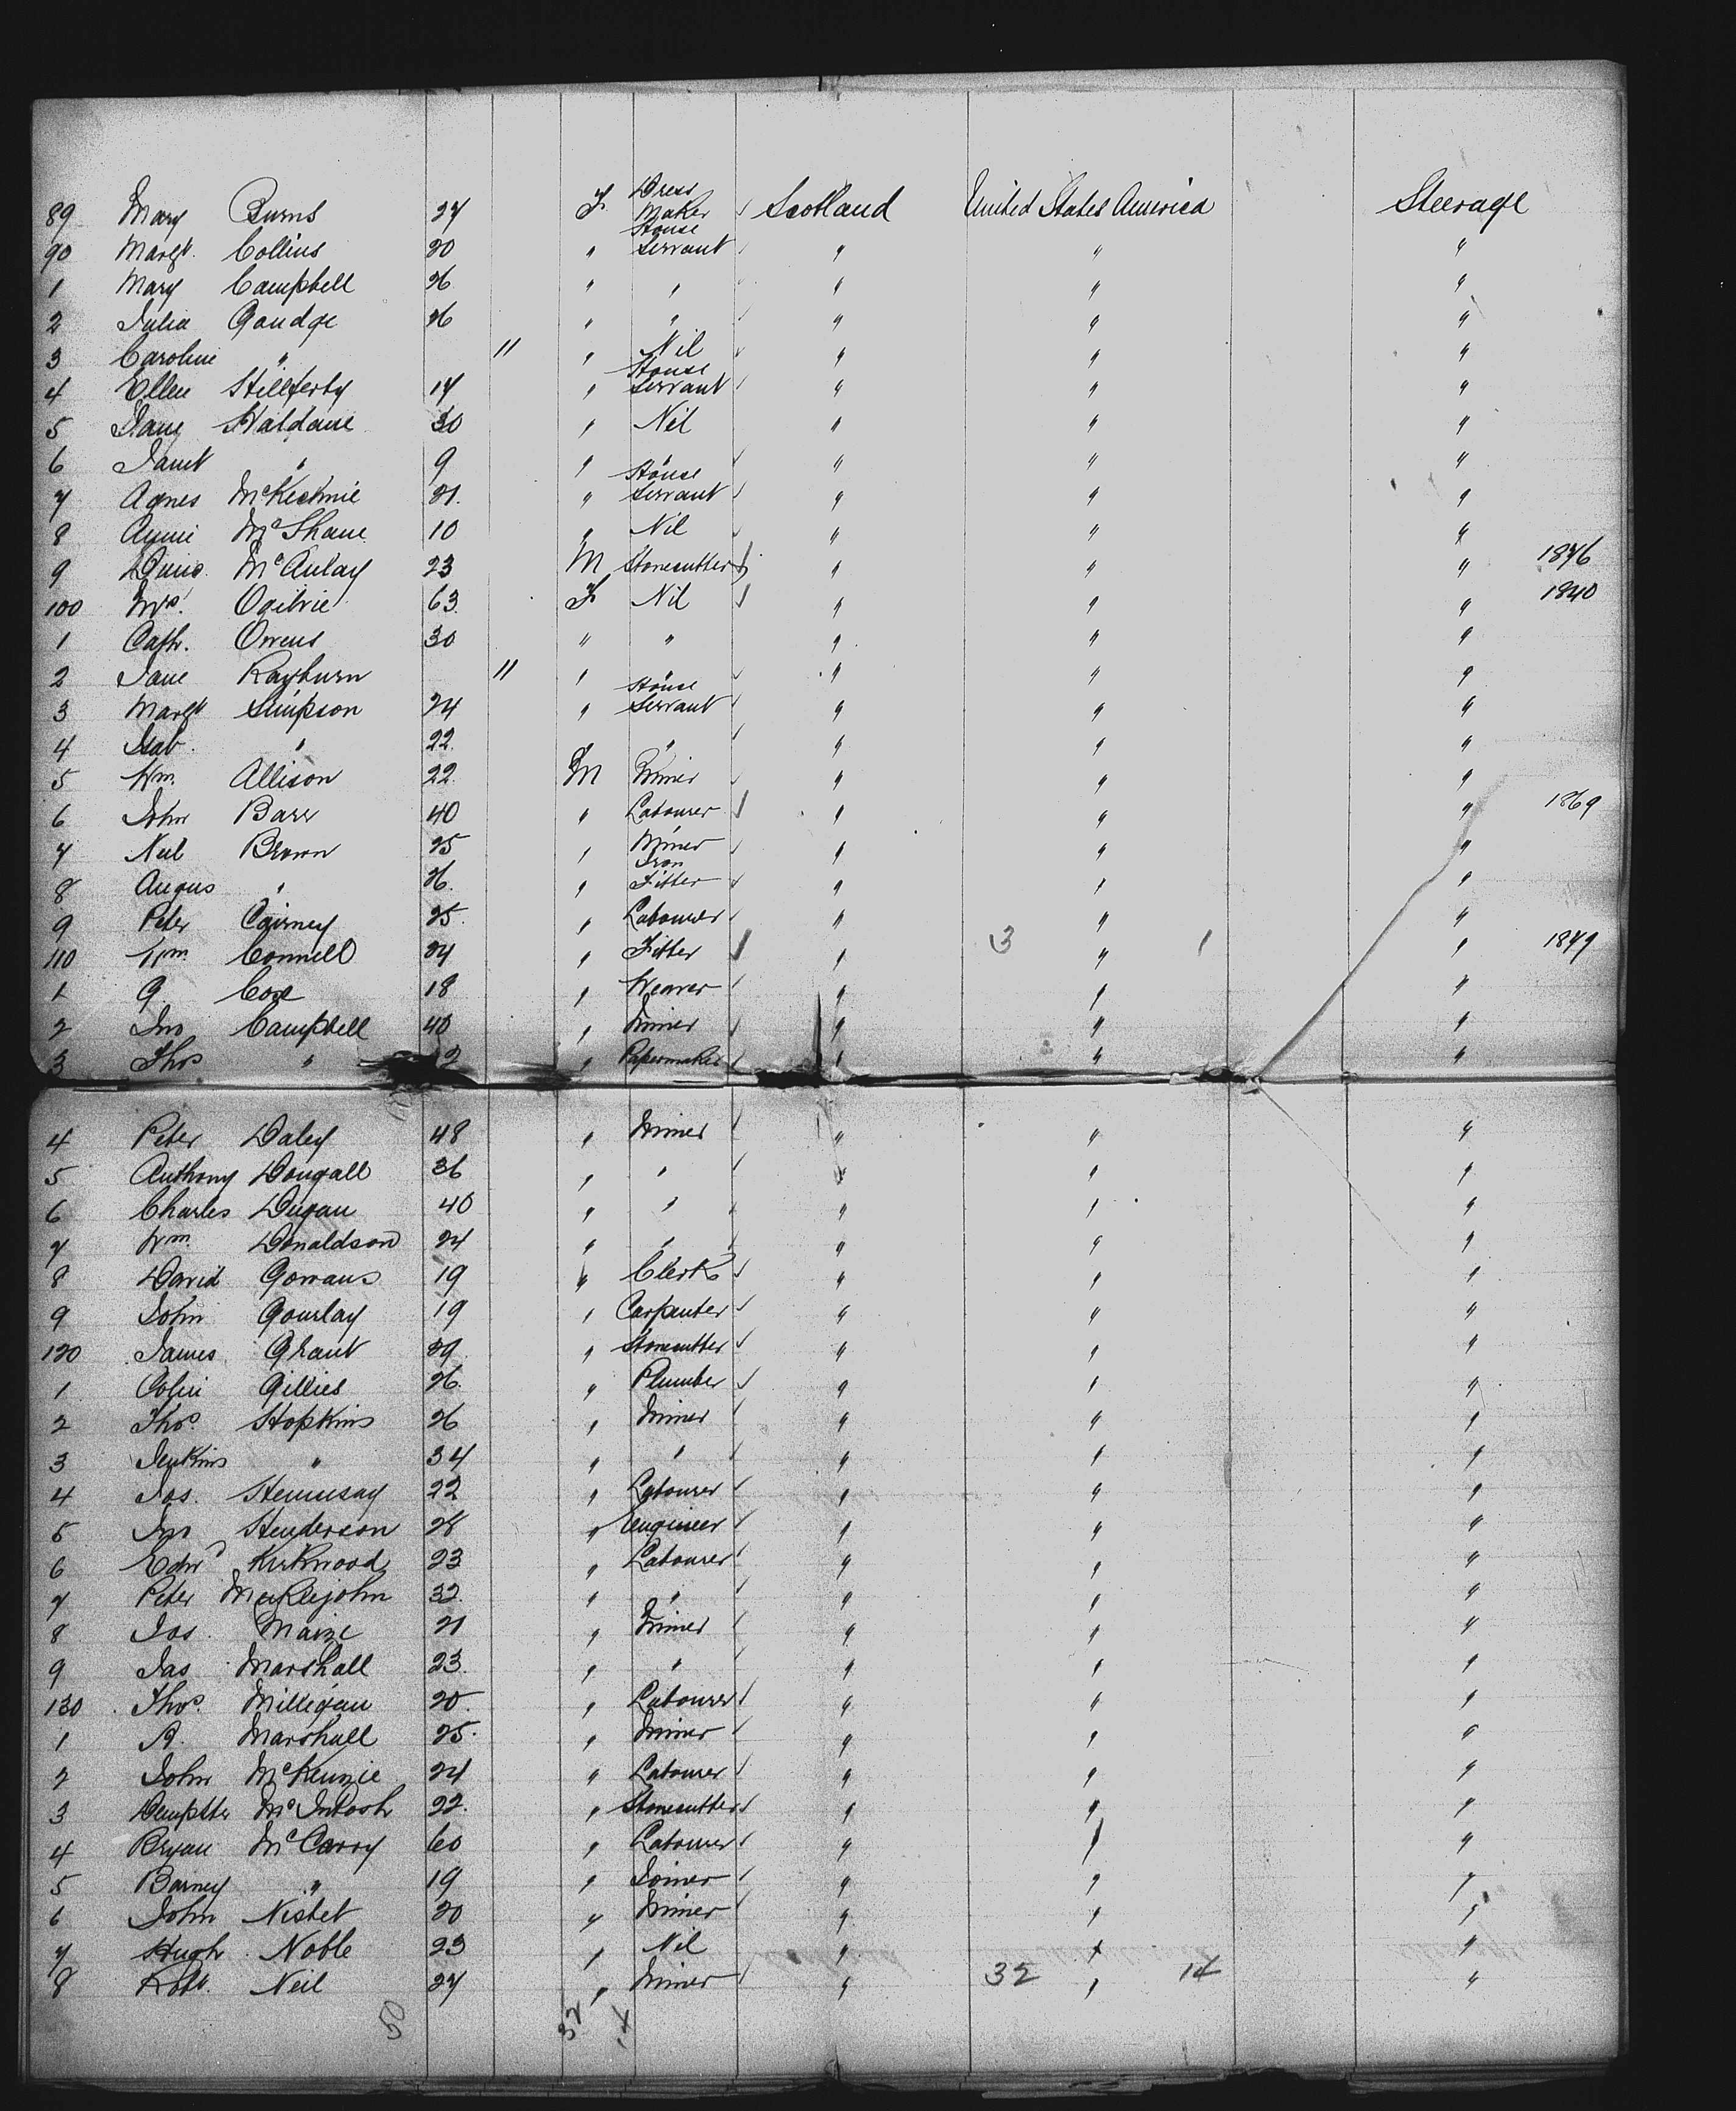 89 Mary Burns 27 F. Dress Maker Scotland United States America Steerage
90 Margt. Collins 20 " House Servant " " "
1 Mary Campbell 26 " " " " "
2 Julia Goudge 26 " " " " "
3 Caroline " 11 " Nil " " "
4 Ellen 17 " House Servant " " "
5 Jane Haldane 30 " Nil " " "
6 Janet " 9 " " " " "
7 Agnes McKechnie 21. " House Servant " " "
8 Annie McShane 10 " Nil " " "
9 McAulay 23 M Stonecutter " " " 1876
100 Mrs. Ogilvie 63. F Nil " " " 1840
1 Cath. Owens 30 " " " " "
2 Jane Rayburn 11 " " " " "
3 Margt Simpson 24 " House Servant " " "
4 Isab. " 22. " " " " "
5 Wm. Allison 22. M Miner " " "
6 John Barr 40 " Labourer " " " 1869
7 Neil Brown 25 " Miner " " "
8 Angus " 26. " Iron Fitter " " "
9 Peter Cairney 25. " Labourer " " "
110 Wm. Connell 24 " Fitter " 3 " 1 " 1879
1 G. Coxe 18 " Weaver " " "
2 Jno Campbell 40 " Miner " " "
3 Thos " 2 " Papermaker " " "
4 Peter Daley 48 " Miner " " "
5 Anthony Dougall 36 " " " " "
6 Charles Dugan 40 " " " " "
7 Wm. Donaldson 24 " " " " "
8 David Gowans 19 " Clerk " " "
9 John Gourlay 19 " Carpenter " " "
120 James Grant 39 " Stonecutter " " "
1 Colin Gillies 26. " Plumber " " "
2 Thos. Hopkins 26 " Miner " " "
3 Jenkins " 34 " " " " "
4 Jos. Hennesay 22 " Labourer " " "
5 Jno Henderson 28 " Engineer " " "
6 Edwd Kirkwood 23 " Labourer " " "
7 Peter Meiklejohn 32. " " " " "
8 Jos. Maize 21 " Miner " " "
9 Jas Marshall 23. " " " " "
130 Thos. Milligan 20. " Labourer " " "
1 A. Marshall 25. " Miner " " "
2 John McKenzie 24 " Labourer " " "
3 Dempster McIntosh 22. " Stonecutter " " "
4 Bryan McCarry 60 " Labourer " " "
5 Barney " 19 " Joiner " " "
6 John Nisbet 20 " Miner " " "
7 Hugh Noble 23 " Nil " " "
8 Robt. Neil 27 " Miner " 32 " 14 "
32 14